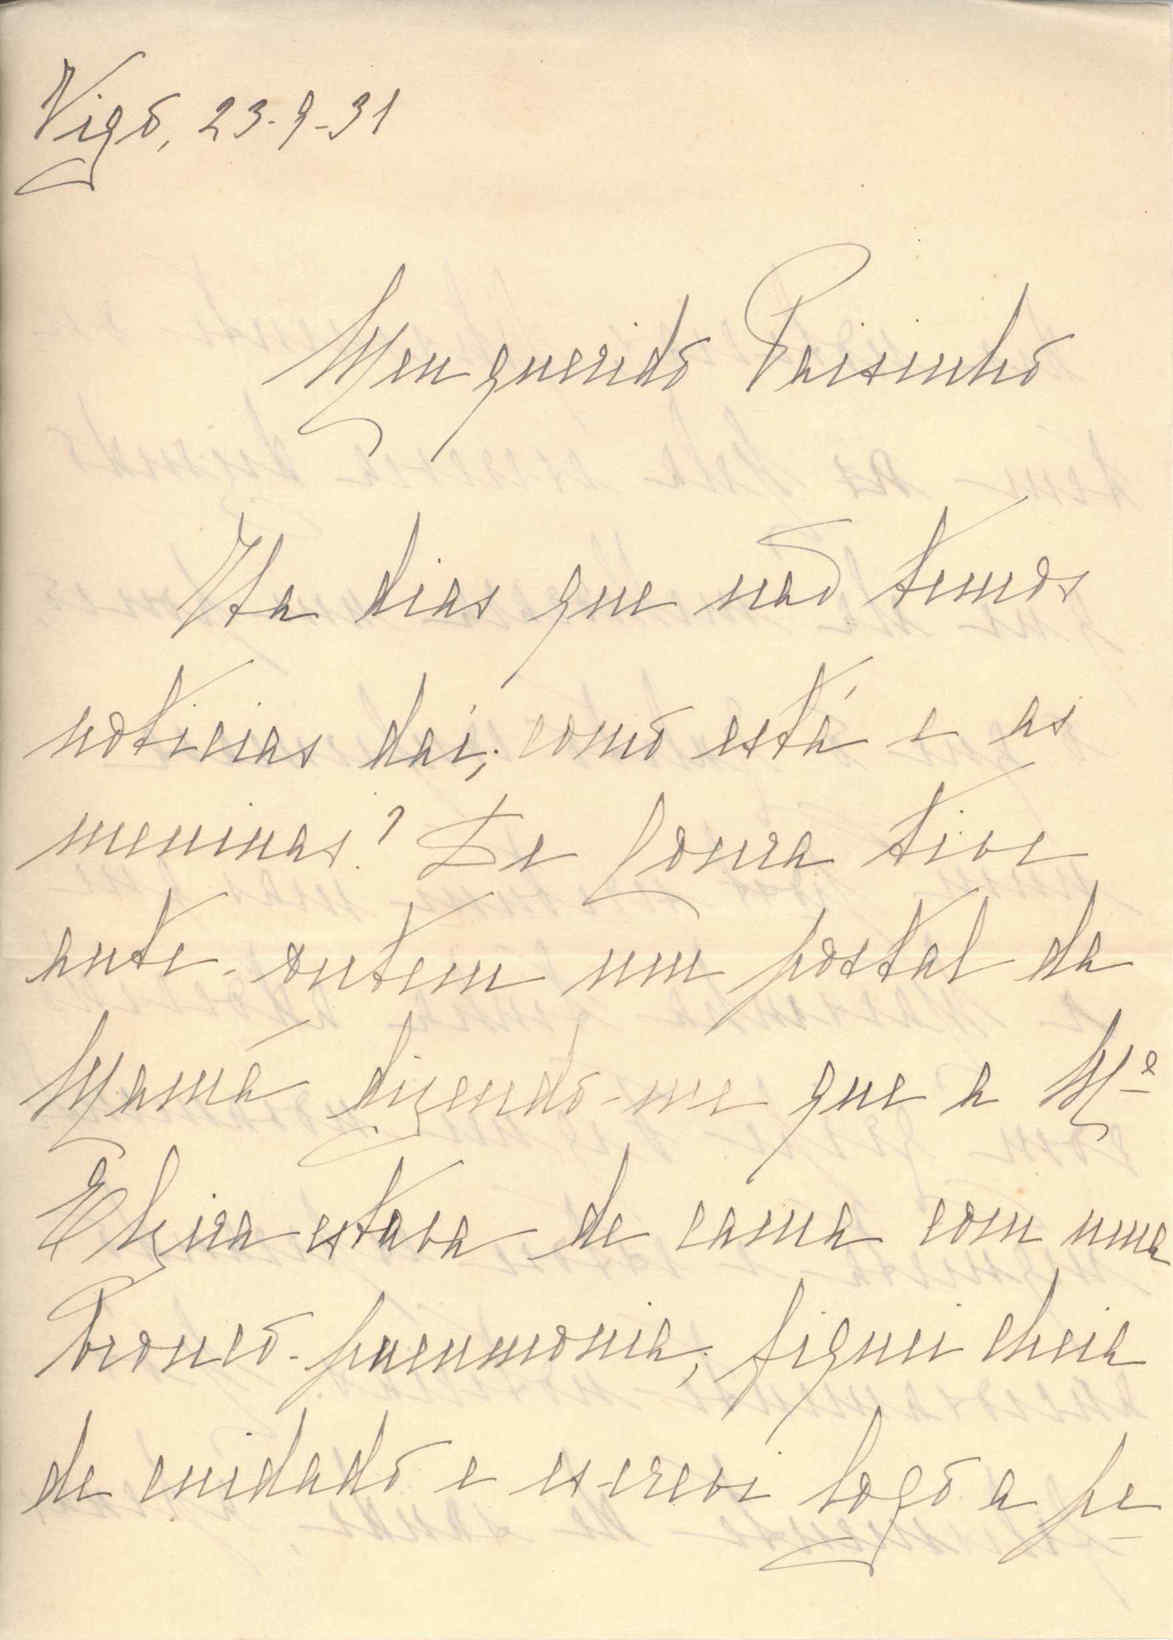 Vigo, 23-9-31
Meu querido Paisinho
Ha dias que não temos
noticias dai; como está e as
meninas? De Lousa tive
ante-ontem um postal da
Mamá dizendo-me que a Mª
Elzira estava de cama com uma
bronco-pneumonia; fiquei cheia
de cuidado e escrevi logo a pe-